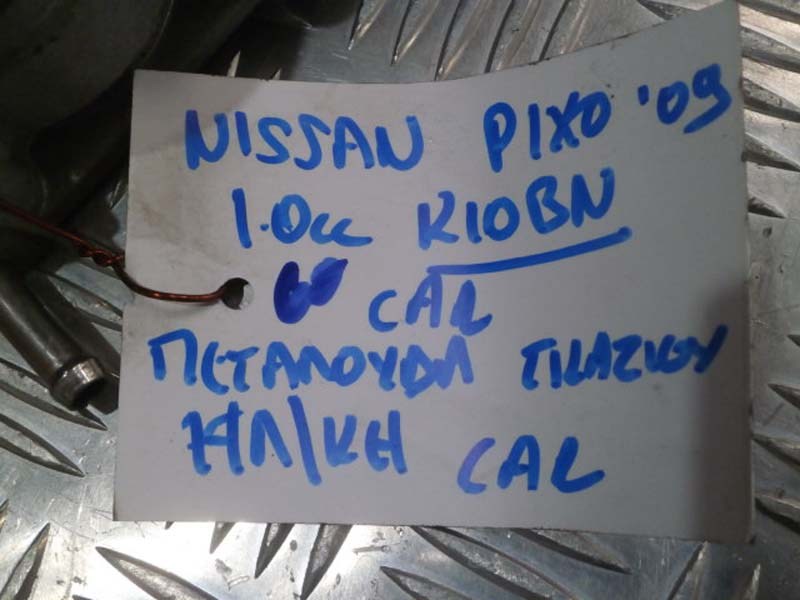 NISSAN PIXO '09
1.0cc K10BN
CAL
ΠΕΤΑΛΟΥΔΑ ΓΚΑΖΙΟΥ
ΗΛ/ΚΗ CAL